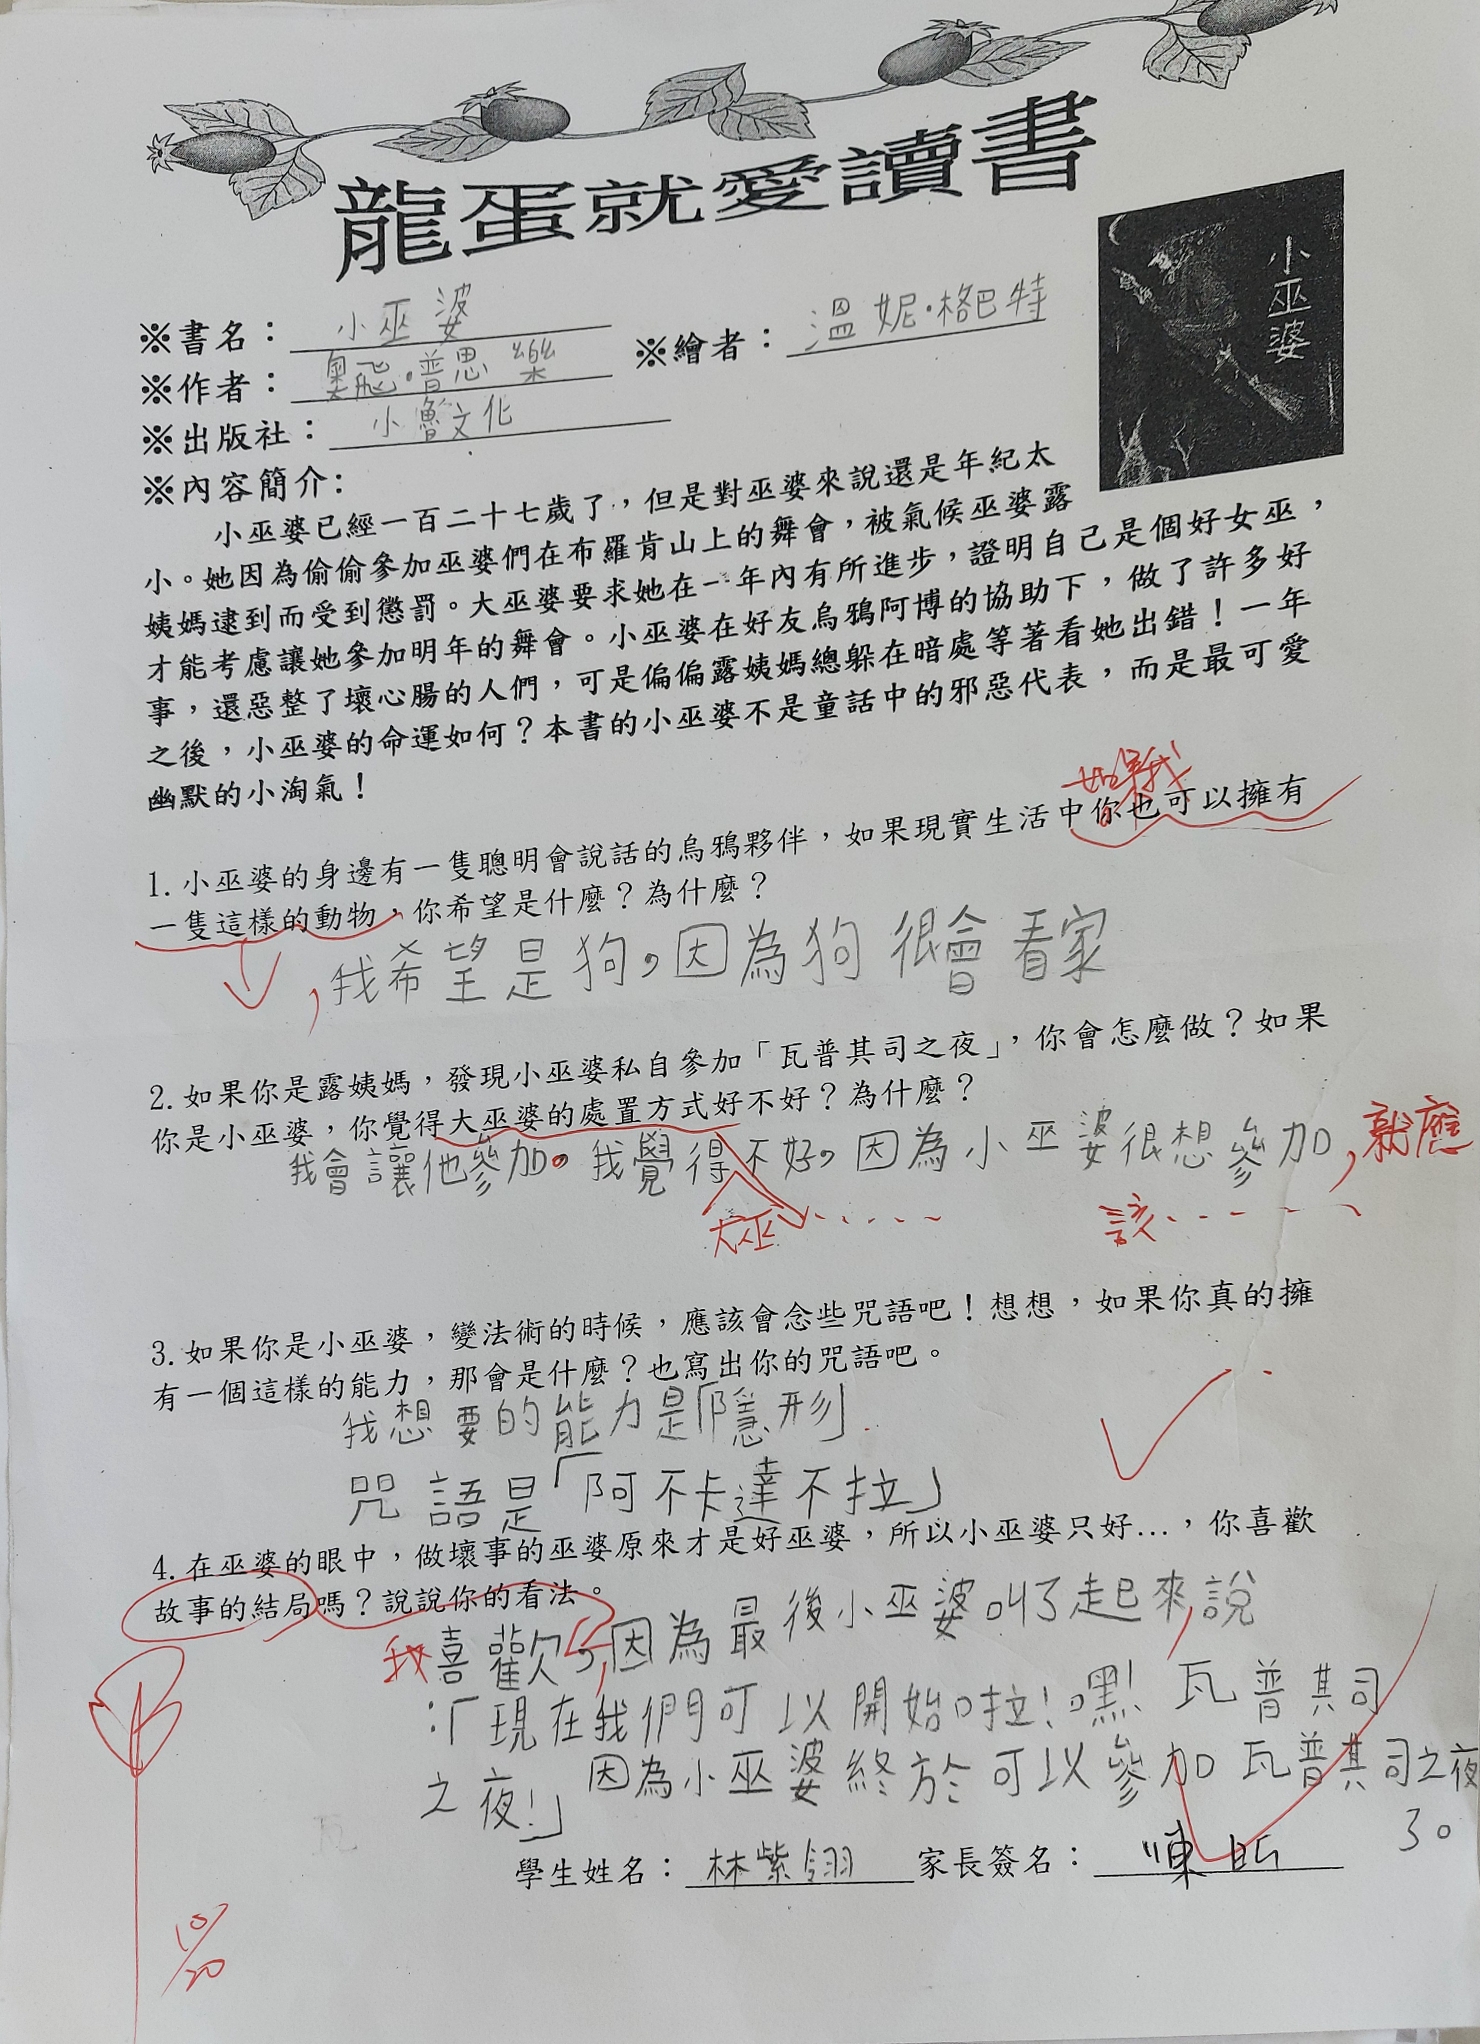 龍蛋就愛讀書
小巫婆
※書名：小巫婆
※繪者：溫妮·格巴特
※作者：奧飛·普思樂
※出版社：小魯文化
※內容簡介:
小巫婆已經一百二十七歲了，但是對巫婆來說還是年紀太
小。她因為偷偷參加巫婆們在布羅肯山上的舞會，被氣候巫婆露
姨媽逮到而受到懲罰。大巫婆要求她在一年內有所進步，證明自己是個好女巫，
才能考慮讓她參加明年的舞會。小巫婆在好友烏鴉阿博的協助下，做了許多好
事，還惡整了壞心腸的人們，可是偏偏露姨媽總躲在暗處等著看她出錯！一年
之後，小巫婆的命運如何？本書的小巫婆不是童話中的邪惡代表，而是最可愛
幽默的小淘氣！
如果我
1. 小巫婆的身邊有一隻聰明會說話的烏鴉夥伴，如果現實生活中你也可以擁有
一隻這樣的動物，你希望是什麼？為什麼？
，我希望是狗，因為狗很會看家
2. 如果你是露姨媽，發現小巫婆私自參加「瓦普其司之夜」，你會怎麼做？如果
你是小巫婆，你覺得大巫婆的處置方式好不好？為什麼？
我會讓他參加。我覺得不好，因為小巫婆很想參加，就應
大巫..... 該.....
3. 如果你是小巫婆，變法術的時候，應該會念些咒語吧！想想，如果你真的擁
有一個這樣的能力，那會是什麼？也寫出你的咒語吧。
我想要的能力是「隱形」
咒語是「阿不卡達不拉」
4. 在巫婆的眼中，做壞事的巫婆原來才是好巫婆，所以小巫婆只好…，你喜歡
故事的結局嗎？說說你的看法。
我喜歡，因為最後小巫婆叫了起來，說
：「現在我們可以開始啦！嘿！瓦普其司
之夜！」因為小巫婆終於可以參加瓦普其司之夜
了。
學生姓名：林紫翎 家長簽名：
10/20